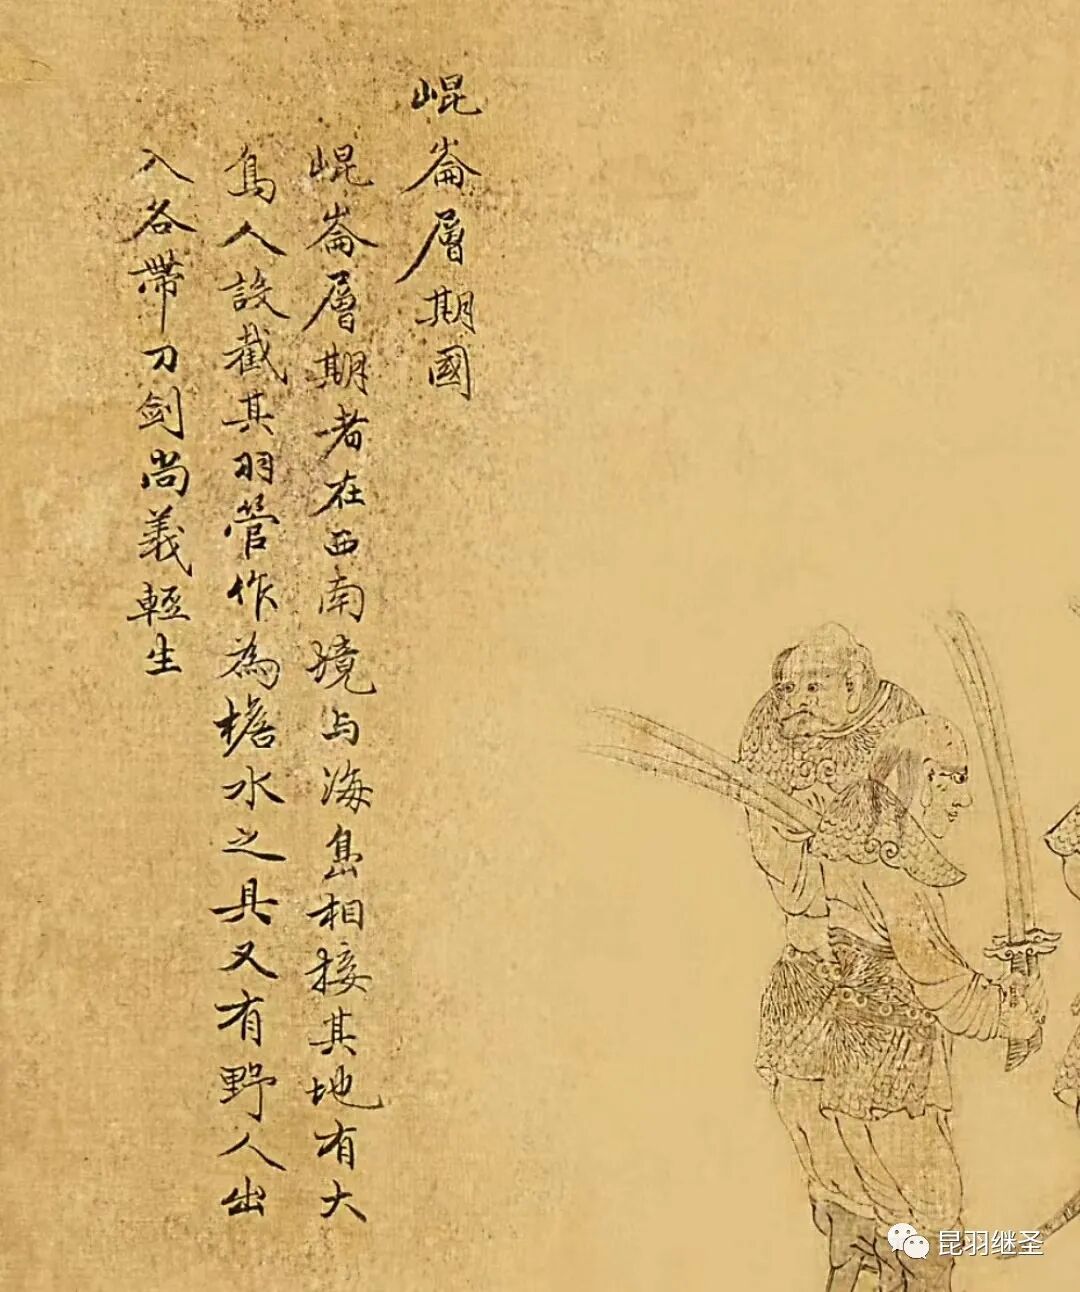 崐崙層期國
崐崙層期者在西南境与海島相接其地有大
鳥人設截其羽管作為檐水之具又有野人出
入各帶刀劍尚義輕生
昆羽继圣